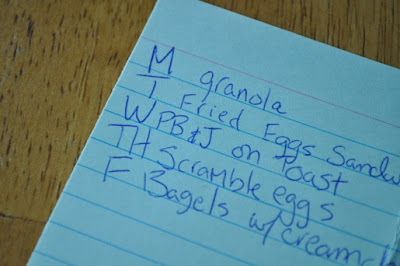 M granola
T Fried Eggs Sandw
W PB&J on Toast
TH Scramble eggs
F Bagels w/ cream